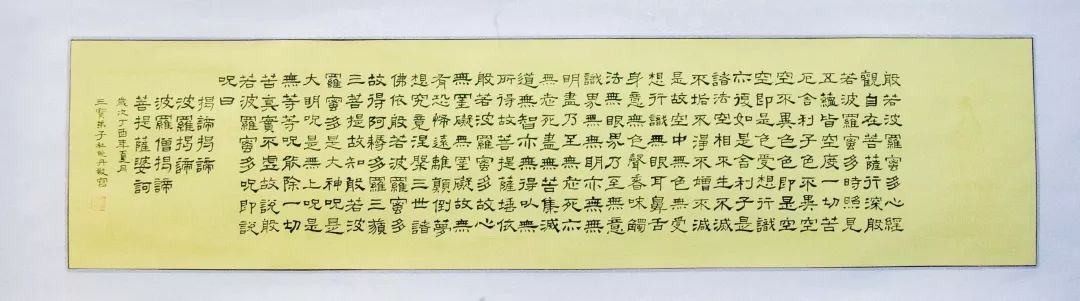 般若波羅蜜多心經
觀自在菩薩行深般
若波羅蜜多時照見
五蘊皆空度一切苦
厄舍利子色不異空
空不異色色即是空
空即是色受想行識
亦復如是舍利子是
諸法空相不生不滅
不垢不淨不增不減
是故空中無色無受
想行識無眼耳鼻舌
身意無色聲香味觸
法無眼界乃至無意
識界無無明亦無無
明盡乃至無老死亦
無老死盡無苦集滅
道無智亦無得以無
所得故菩提薩埵依
般若波羅蜜多故心
無罣礙無罣礙故無
有恐怖遠離顛倒夢
想究竟涅槃三世諸
佛依般若波羅蜜多
故得阿耨多羅三藐
三菩提故知般若波
羅蜜多是大神呪是
大明呪是無上呪是
無等等呪能除一切
苦真實不虛故說般
若波羅蜜多呪即說
呪曰
揭諦揭諦
波羅揭諦
波羅僧揭諦
菩提薩婆訶
歲次丁酉年夏月
三寶弟子敬書